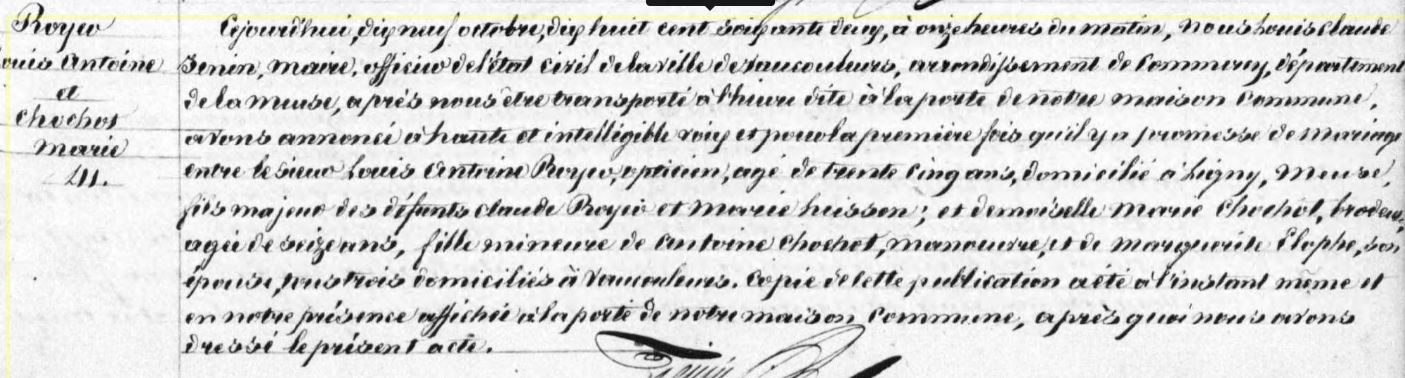 Royer
Louis Antoine
et
Chochot
Marie
Cejourd'hui, dix neuf octobre, dix huit cent soixante deux, à onze heures du matin, nous Louis Claude
Jenin, Maire, officier de l'état civil de la ville de Vaucouleurs, arrondissement de Commercy, département
de la Meuse, après nous être transporté à l'heure dite à la porte de notre maison commune,
avons annoncé à haute et intelligible voix et pour la première fois qu'il y a promesse de Mariage
entre le sieur Louis Antoine Royer, opticien, agé de trente cinq ans, domicilié à Ligny, Meuse,
fils majeur des défunts Claude Royer et Marie husson; et demoiselle Marie Chochot, brodeuse,
agée de seize ans, fille mineure de Antoine Chochot, manoeuvre, et de Marguerite Elophe, son
épouse, tous trois domiciliés à Vaucouleurs. Copie de cette publication a été à l'instant même et
en notre présence affichée à la porte de notre maison commune, après quoi nous avons
dressé le présent acte.
Jenin